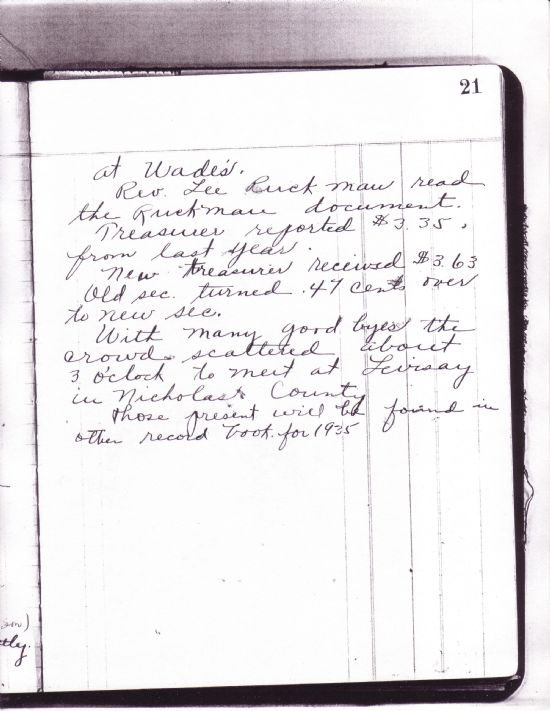 21
at Wade's.
Rev. Lee Ruckman read
the Ruckman document.
Treasurer reported $3.35,
from last year.
New treasurer received $3.63
Old sec. turned .47 cents over
to new sec.
With many good byes the
crowd scattered about
3 o'clock to meet at Levisay
in Nicholas County
Those present will be found in
other record book for 1935